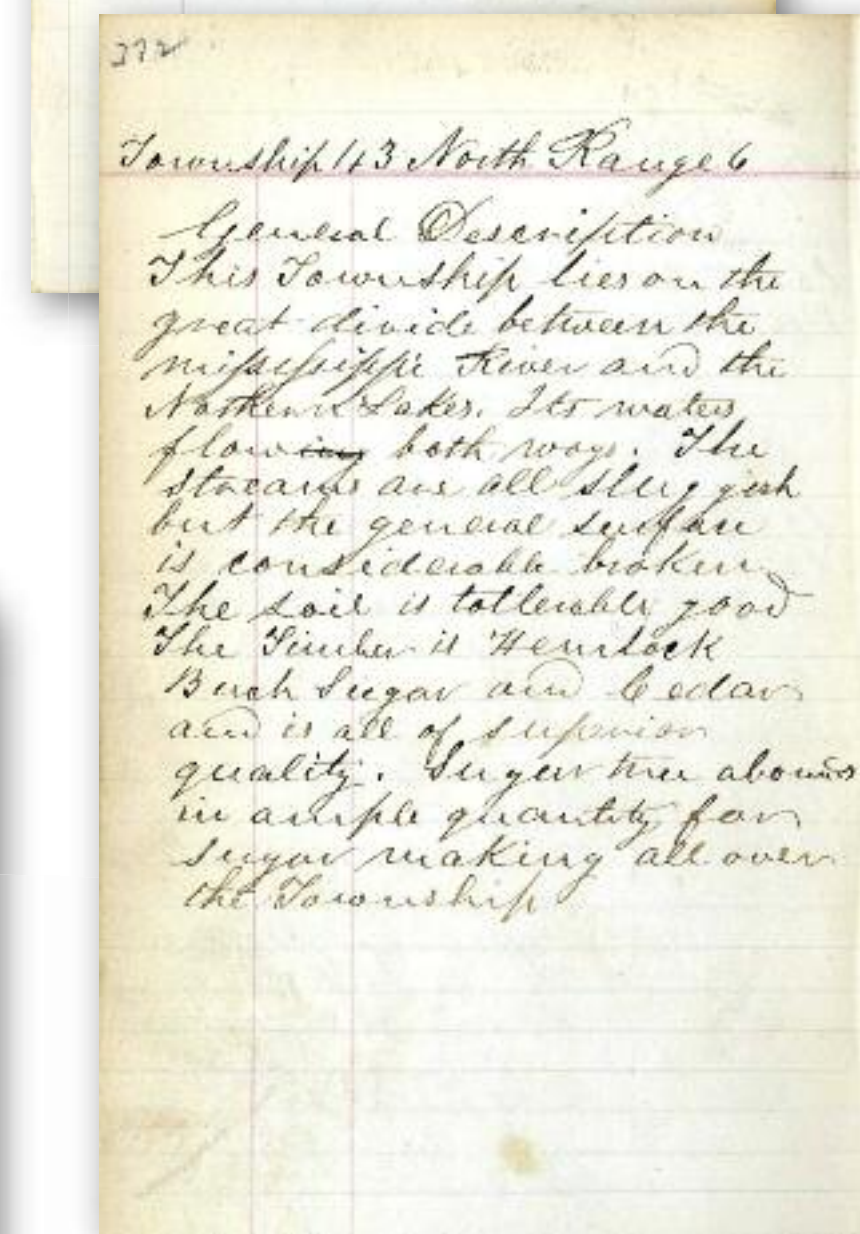 372
Township 43 North Range 6
General Description
This Township lies on the
great divide between the
Mississippi River and the
Northern Lakes. Its waters
flowing both ways. The
streams are all sluggish
but the general surface
is considerable broken
The soil is tollerable good
The Timber is Hemlock
Birch Sugar and Cedar
and is all of superior
quality. Sugar tree abounds
in ample quantity for
sugar making all over
the Township